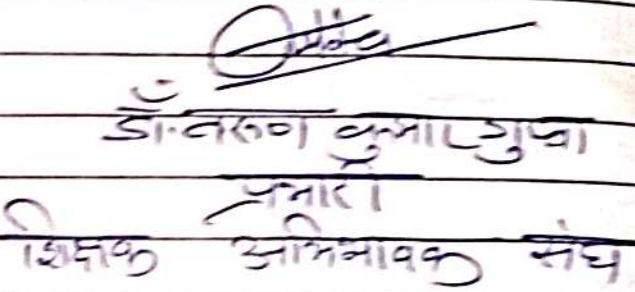 डॉ. तरुण कुमार गुप्ता
प्रभारी
शिक्षक अभिभावक संघ